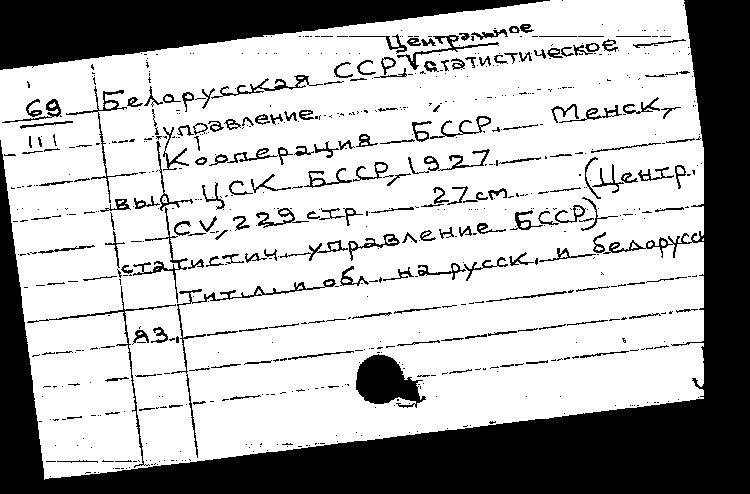 Центральное
69 Белорусская ССР, V статистическое —
III управление.
Кооперация БССР. Менск,
выд. ЦСК БССР, 1927.
CV, 229 стр. 27 cm. (Центр.
статистич. управление БССР)
Тит. л. и обл. на русск. и белорусск
яз.